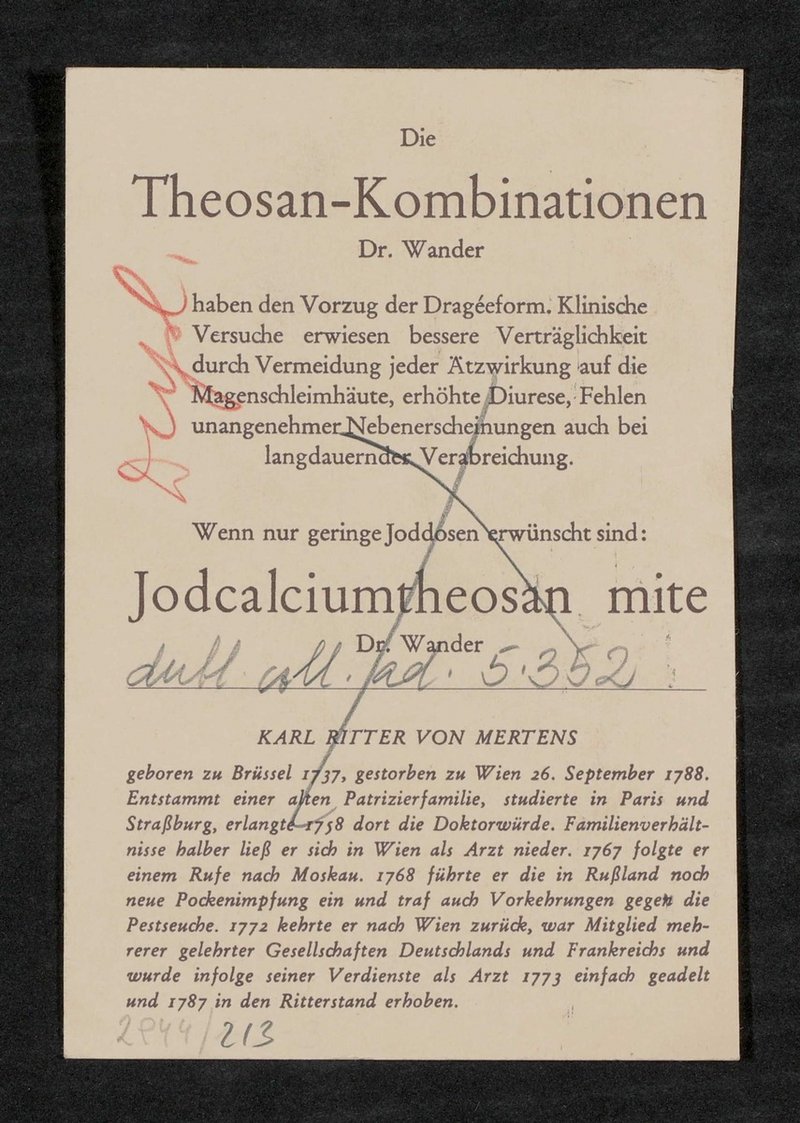 Die
Theosan-Kombinationen
Dr. Wander
haben den Vorzug der Drageéform. Klinische
Versuche erwiesen bessere Verträglichkeit
durch Vermeidung jeder Ätzwirkung auf die
Magenschleimhäute, erhöhte Diurese, Fehlen
unangenehmer Nebenerscheinungen auch bei
langdauernder Verabreichung.
Wenn nur geringe Joddosen erwünscht sind:
Jodcalciumtheosan mite
Dr. Wander
5.352
KARL RITTER VON MERTENS
geboren zu Brüssel 1737, gestorben zu Wien 26. September 1788.
Entstammt einer alten Patrizierfamilie, studierte in Paris und
Straßburg, erlangte 1758 dort die Doktorwürde. Familienverhält-
nisse halber ließ er sich in Wien als Arzt nieder. 1767 folgte er
einem Rufe nach Moskau. 1768 führte er die in Rußland noch
neue Pockenimpfung ein und traf auch Vorkehrungen gegen die
Pestseuche. 1772 kehrte er nach Wien zurück, war Mitglied meh-
rerer gelehrter Gesellschaften Deutschlands und Frankreichs und
wurde infolge seiner Verdienste als Arzt 1773 einfach geadelt
und 1787 in den Ritterstand erhoben.
213